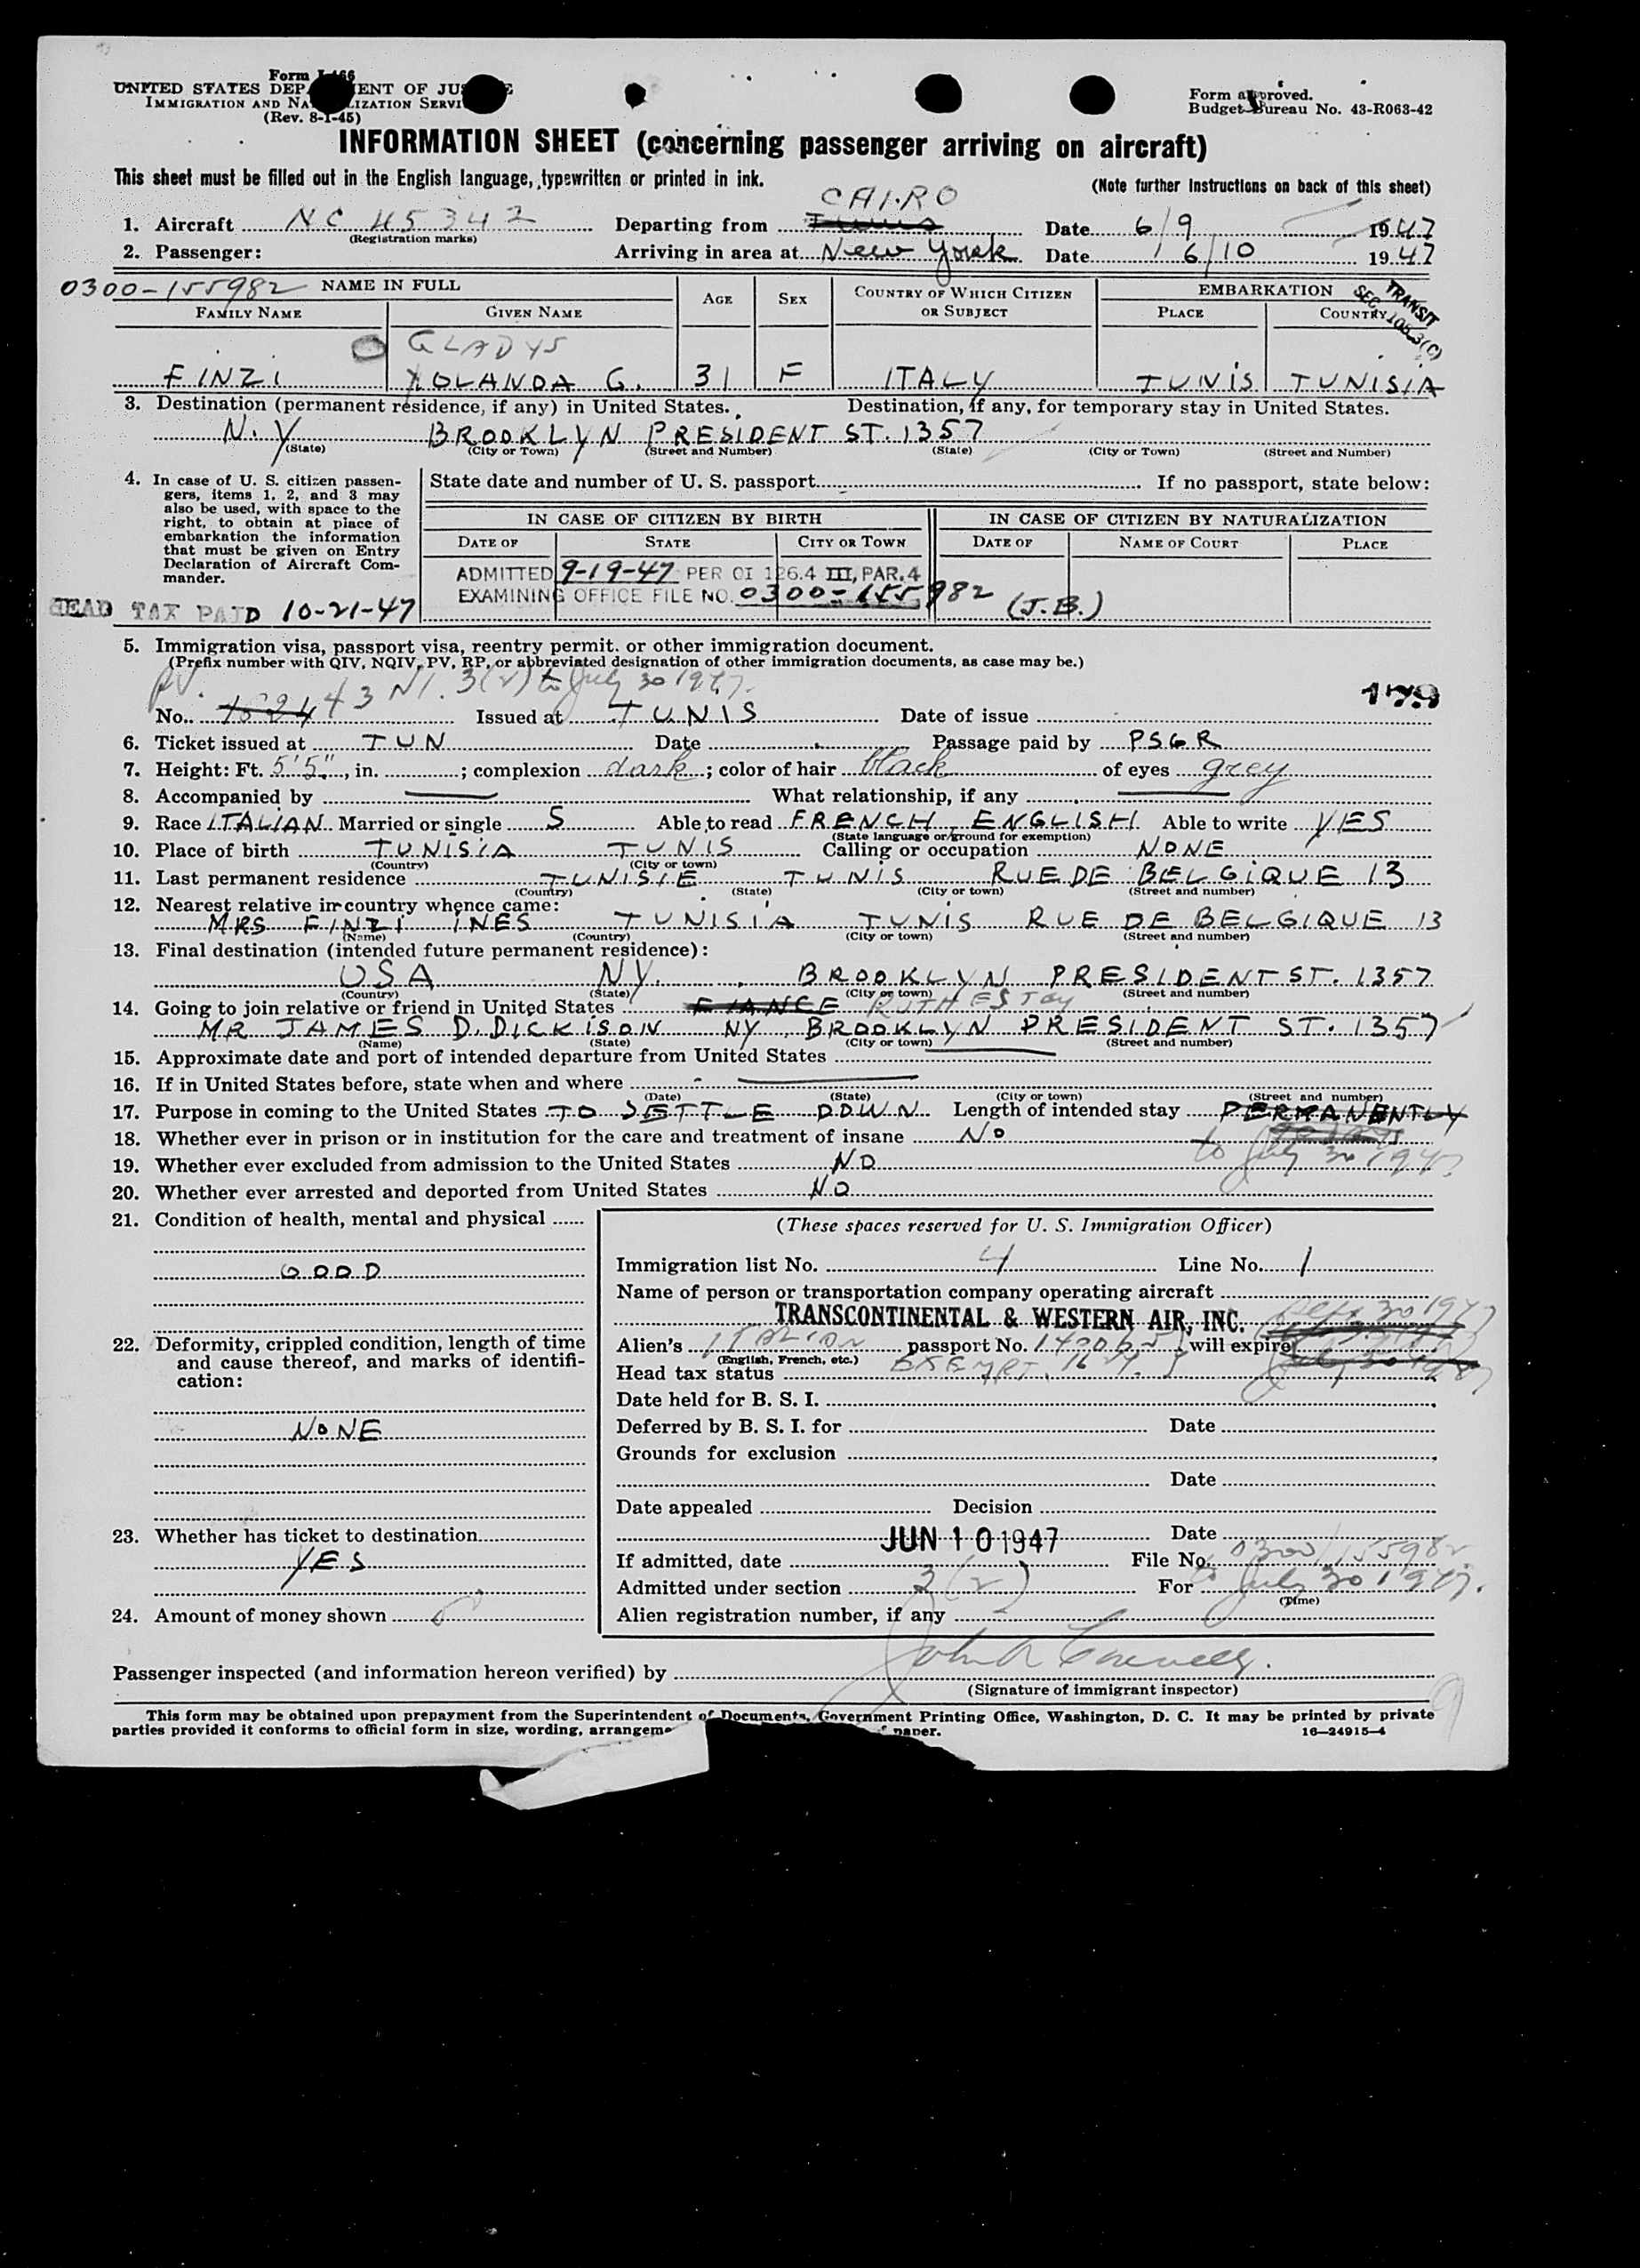 Form I-466
UNITED STATES DEPARTMENT OF JUSTICE
IMMIGRATION AND NATURALIZATION SERVICE
(Rev. 8-1-45)
Form approved.
Budget Bureau No. 43-R063-42
INFORMATION SHEET (concerning passenger arriving on aircraft)
This sheet must be filled out in the English language, typewritten or printed in ink.
(Note further instructions on back of this sheet)
CAIRO
1. Aircraft NC 45342 Departing from Tunis Date 6/9 1947
(Registration marks)
2. Passenger: Arriving in area at New York Date 6/10 1947
0300-155982 NAME IN FULL AGE SEX COUNTRY OF WHICH CITIZEN OR SUBJECT EMBARKATION
TRANSIT SEC 105.3(C)
FAMILY NAME GIVEN NAME PLACE COUNTRY
GLADYS
FINZI YOLANDA G. 31 F ITALY TUNIS TUNISIA
3. Destination (permanent residence, if any) in United States. Destination, if any, for temporary stay in United States.
N.Y BROOKLYN PRESIDENT ST. 1357
(State) (City or Town) (Street and Number) (State) (City or Town) (Street and Number)
4. In case of U. S. citizen passengers, items 1, 2, and 3 may also be used, with space to the right, to obtain at place of embarkation the information that must be given on Entry Declaration of Aircraft Commander.
State date and number of U. S. passport If no passport, state below:
IN CASE OF CITIZEN BY BIRTH IN CASE OF CITIZEN BY NATURALIZATION
DATE OF STATE CITY OR TOWN DATE OF NAME OF COURT PLACE
ADMITTED 9-19-47 PER OI 126.4 III, PAR. 4
EXAMINING OFFICE FILE NO. 0300-155982 (J.B.)
HEAD TAX PAID 10-21-47
5. Immigration visa, passport visa, reentry permit. or other immigration document.
(Prefix number with QIV, NQIV, PV, RP, or abbreviated designation of other immigration documents, as case may be.)
PV. 43 3(2) to July 30 1947.
179
No. Issued at TUNIS Date of issue
6. Ticket issued at TUN Date Passage paid by PSGR
7. Height: Ft. 5'5", in. ; complexion dark ; color of hair black of eyes grey
8. Accompanied by — What relationship, if any —
9. Race ITALIAN Married or single S Able to read FRENCH ENGLISH Able to write YES
(State language or ground for exemption)
10. Place of birth TUNISIA TUNIS Calling or occupation NONE
(Country) (City or town)
11. Last permanent residence TUNISIE TUNIS RUE DE BELGIQUE 13
(Country) (State) (City or town) (Street and number)
12. Nearest relative in country whence came:
MRS FINZI INES TUNISIA TUNIS RUE DE BELGIQUE 13
(Name) (Country) (City or town) (Street and number)
13. Final destination (intended future permanent residence):
USA NY. BROOKLYN PRESIDENT ST. 1357
(Country) (State) (City or town) (Street and number)
14. Going to join relative or friend in United States FIANCE
MR JAMES D. DICKISON NY BROOKLYN PRESIDENT ST. 1357
(Name) (State) (City or town) (Street and number)
15. Approximate date and port of intended departure from United States —
16. If in United States before, state when and where —
(Date) (State) (City or town) (Street and number)
17. Purpose in coming to the United States TO SETTLE DOWN Length of intended stay PERMANENTLY
18. Whether ever in prison or in institution for the care and treatment of insane NO
to July 30 1947
19. Whether ever excluded from admission to the United States NO
20. Whether ever arrested and deported from United States NO
21. Condition of health, mental and physical
GOOD
22. Deformity, crippled condition, length of time and cause thereof, and marks of identification:
NONE
23. Whether has ticket to destination
YES
24. Amount of money shown
(These spaces reserved for U. S. Immigration Officer)
Immigration list No. 4 Line No. 1
Name of person or transportation company operating aircraft
TRANSCONTINENTAL & WESTERN AIR, INC.
Sept 30 1947
Alien's ITALIAN passport No. will expire
(English, French, etc.)
Head tax status EXEMPT.
Date held for B. S. I.
Deferred by B. S. I. for Date
Grounds for exclusion
Date
Date appealed Decision
JUN 10 1947 Date
If admitted, date File No. 0300/155982
Admitted under section 3(2) For to July 30 1947.
(Time)
Alien registration number, if any
Passenger inspected (and information hereon verified) by
(Signature of immigrant inspector)
This form may be obtained upon prepayment from the Superintendent of Documents, Government Printing Office, Washington, D. C. It may be printed by private
parties provided it conforms to official form in size, wording, arrangeme paper.
16—24915-4